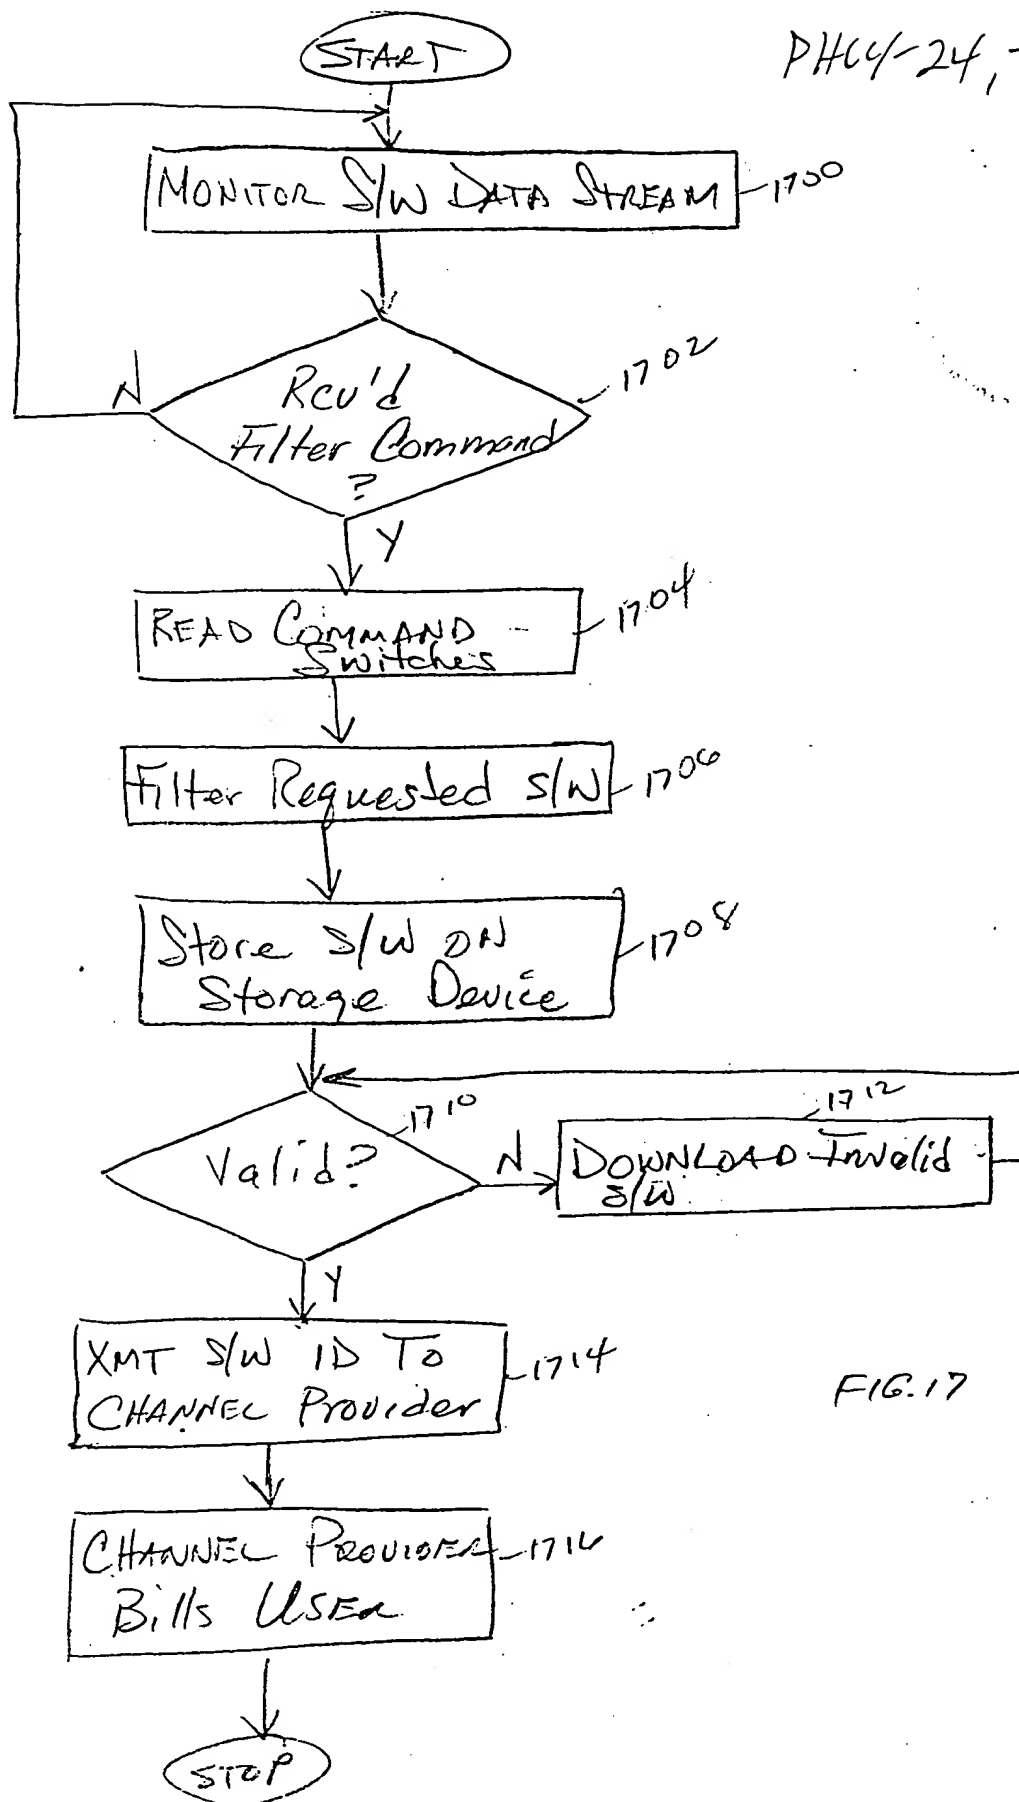 START
PHCY-24,
MONITOR S/W DATA STREAM
1700
N
Rcv'd
Filter Command
?
1702
Y
READ COMMAND
Switches
1704
Filter Requested S/W
1706
Store S/W ON
Storage Device
1708
Valid?
1710
N
1712
DOWNLOAD Invalid
S/W
Y
XMT S/W ID TO
CHANNEL Provider
1714
FIG.17
CHANNEL PROVIDER
Bills USER
1716
STOP